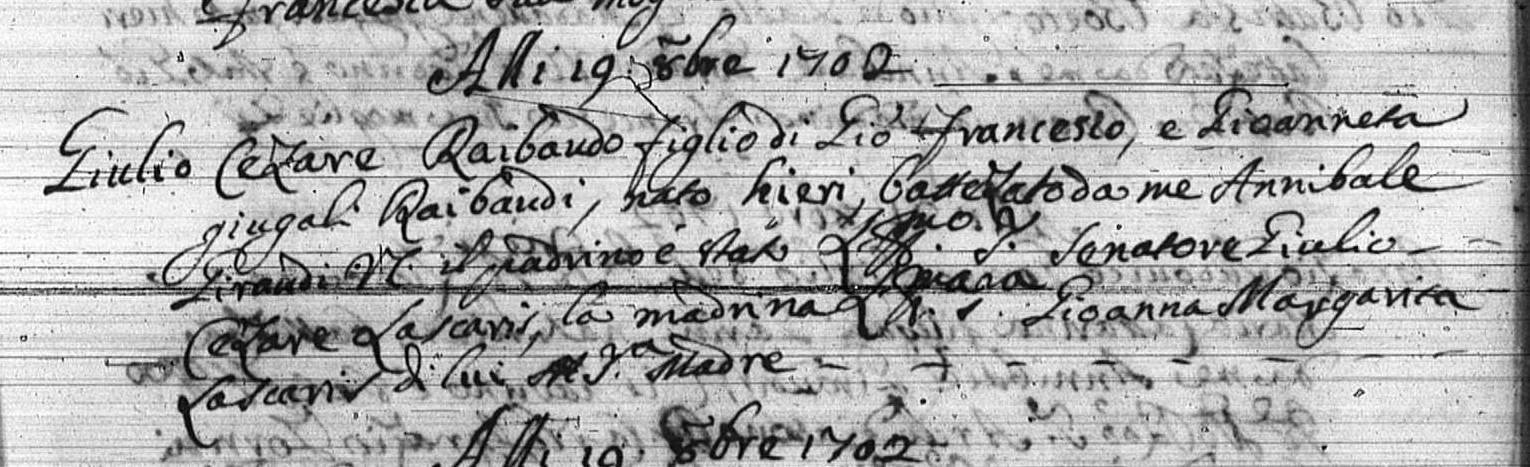 Francesca sua mog
Alli 19 8bre 1702
Giulio Cezare Raibaudo figlio di Gio Francesco, e Gioanneta
giugali Raibaudi, nato hieri, battezato da me Annibale
Giraudi V. il padrino è stato L'Ill.mo S. Senatore Giulio
Cezare Lascaris, la madrina L'Ill.ma S. Gioanna Margarita
Lascaris di lui Sig.ra Madre
Alli 19 8bre 1702